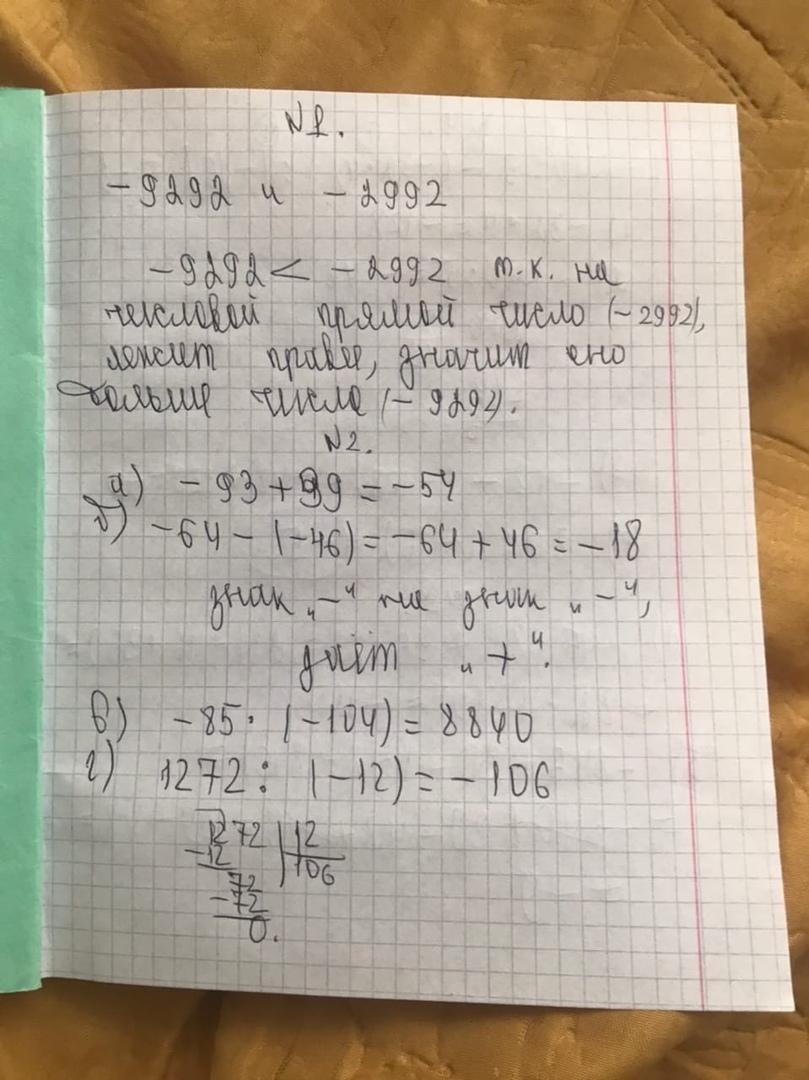 N1.
-9292 и -2992
-9292 < -2992 т.к. на
числовой прямой число (-2992),
лежит правее, значит оно
больше числа (-9292).
N2.
а) -93+39=-54
б) -64-(-46)=-64+46=-18
знак „-“ на знак „-“,
даёт „+“.
в) -85·(-104)=8840
г) 1272:(-12)=-106
1272 12
-12 106
72
-72
0.